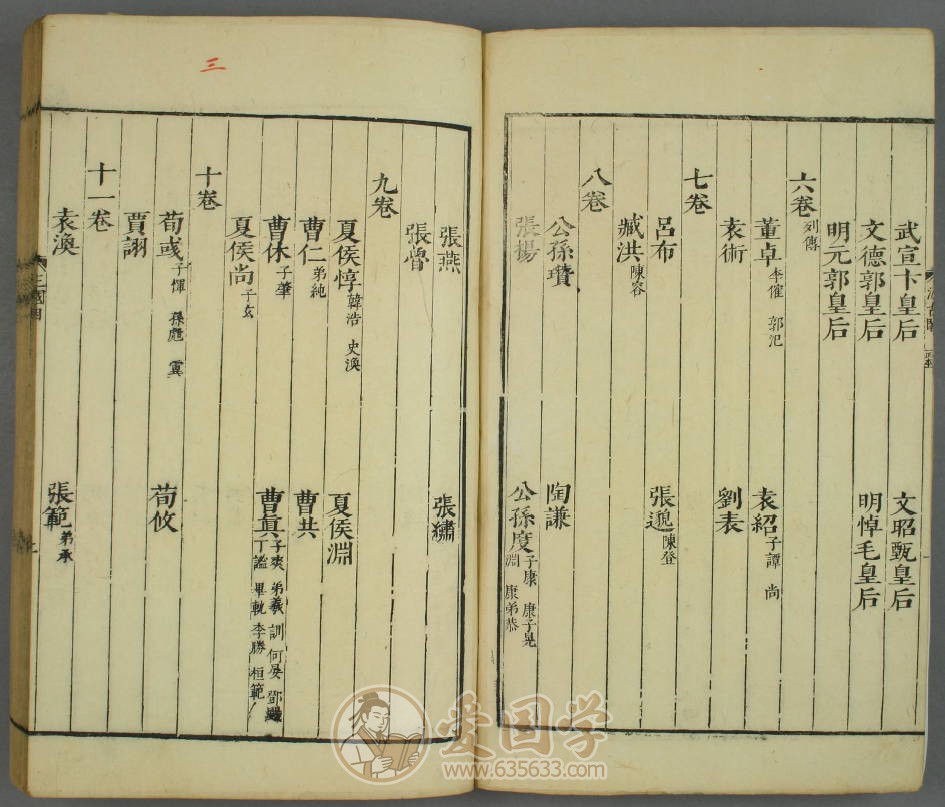 武宣卞皇后 文昭甄皇后
文德郭皇后 明悼毛皇后
明元郭皇后
六卷 列傳
董卓 李傕 郭汜 袁紹 子譚 尚
袁術 劉表
七卷
呂布 張邈 陳登
臧洪 陳容
八卷
公孫瓚 陶謙
張楊 公孫度 子康 康子晃 淵 康弟恭
張燕 張繡
張魯
九卷
夏侯惇 韓浩 史渙 夏侯淵
曹仁 弟純 曹洪
曹休 子肇 曹真 子爽 弟羲 訓 何晏 鄧颺 丁謐 畢軌 李勝 桓範
夏侯尚 子玄
十卷
荀彧 子惲 孫甝 霬 荀攸
賈詡
十一卷
袁渙 張範 弟承
三
三國目
汲古閣
爱国学
www.635633.com